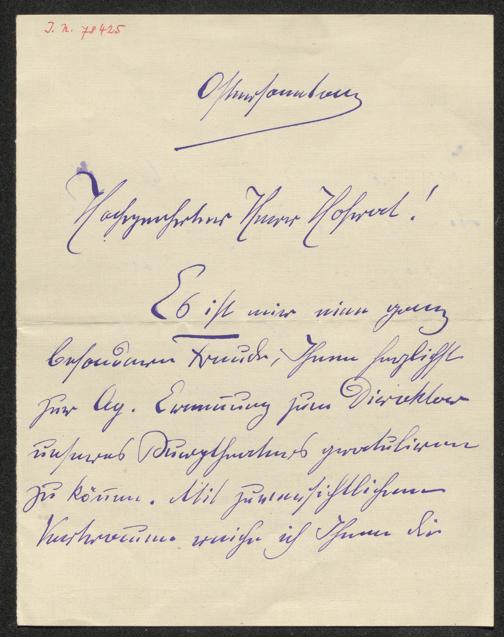 I. N. 78425
Ostersonntag
Hochgeehrter Herr Hofrat!
Es ist mir eine ganz
besondere Freude, Ihnen herzlichst
zur Ernennung zum Direktor
unseres Burgtheaters gratulieren
zu können. Mit zuversichtlichem
Vertrauen reiche ich Ihnen die